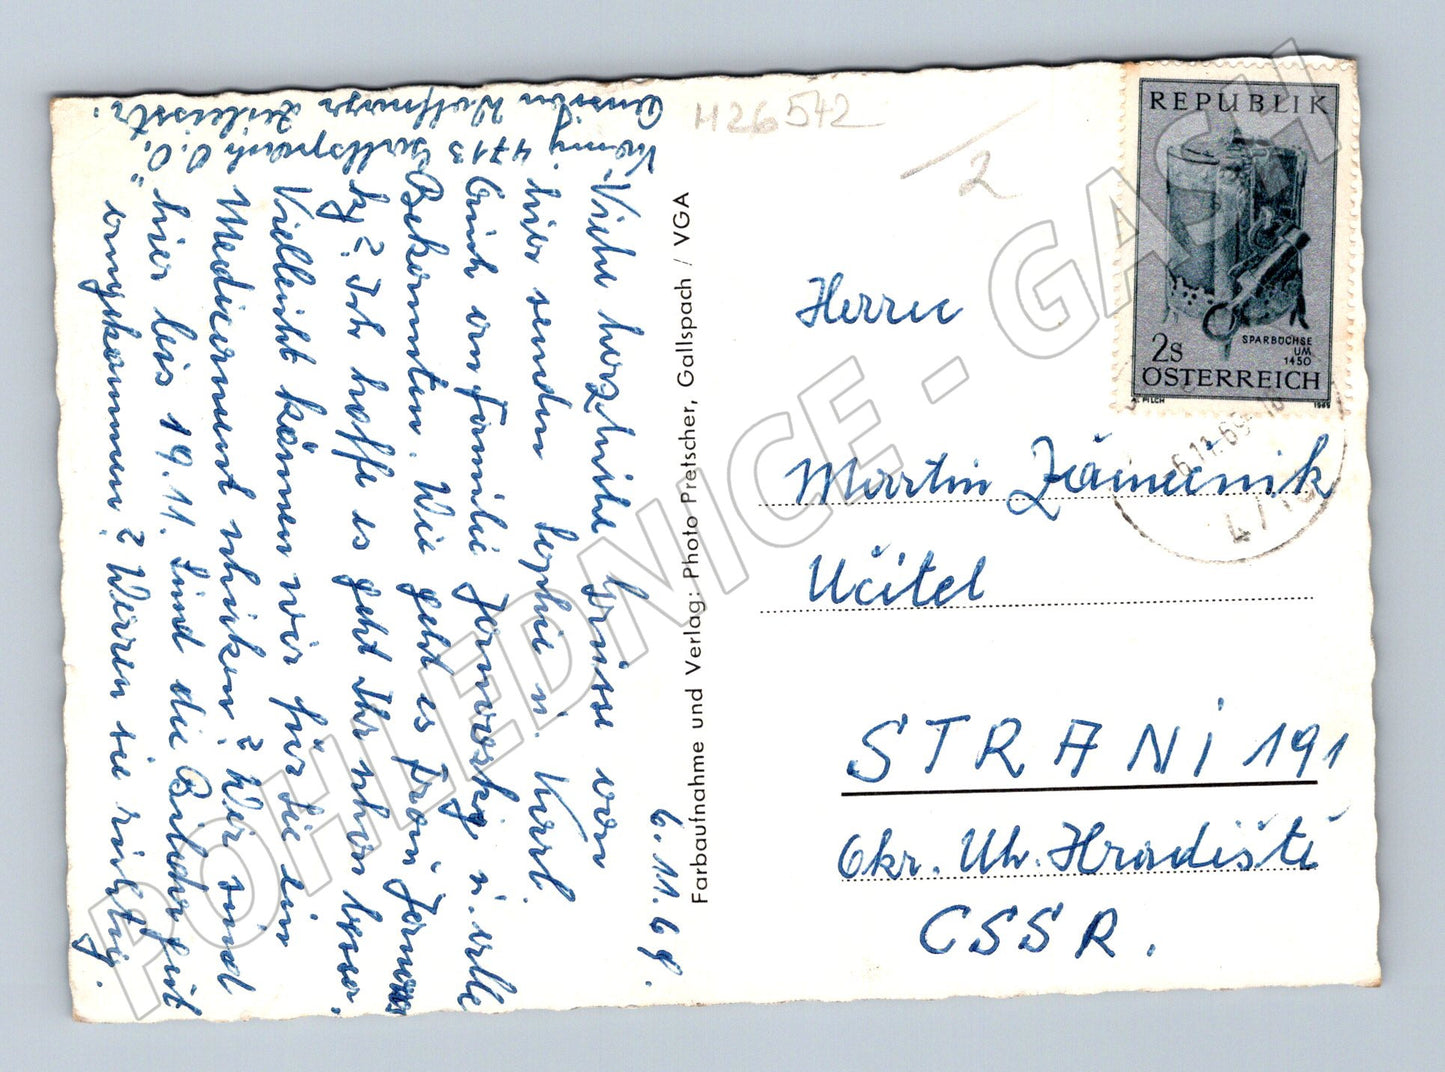 6.11.69.
Viele herzliche Grüsse von
hier senden Sophie u. Karl.
Auch von Familie Jarnovsky u. alle
Bekannten. Wie geht es Frau Jarnov
ky? Ich hoffe es geht Ihr schon besser,
Vielleicht können wir für Sie ein
Medicament schicken? Wir sind
hier bis 19.11. Sind die Bilder gut
angekommen? Waren sie richtig.
4713 Gallspach O.Ö.
Wolfmayr Zeileisstr.
Farbaufnahme und Verlag: Photo Pretscher, Gallspach / VGA
H26542
2
REPUBLIK
SPARBÜCHSE
UM
1450
2s
ÖSTERREICH
A. PILCH 1969
6.11.69-18
471
Herrn
Martin Zámečník
Učitel
STRANI 191
Okr. Uh. Hradiště
CSSR.
POHLEDNICE - GASH